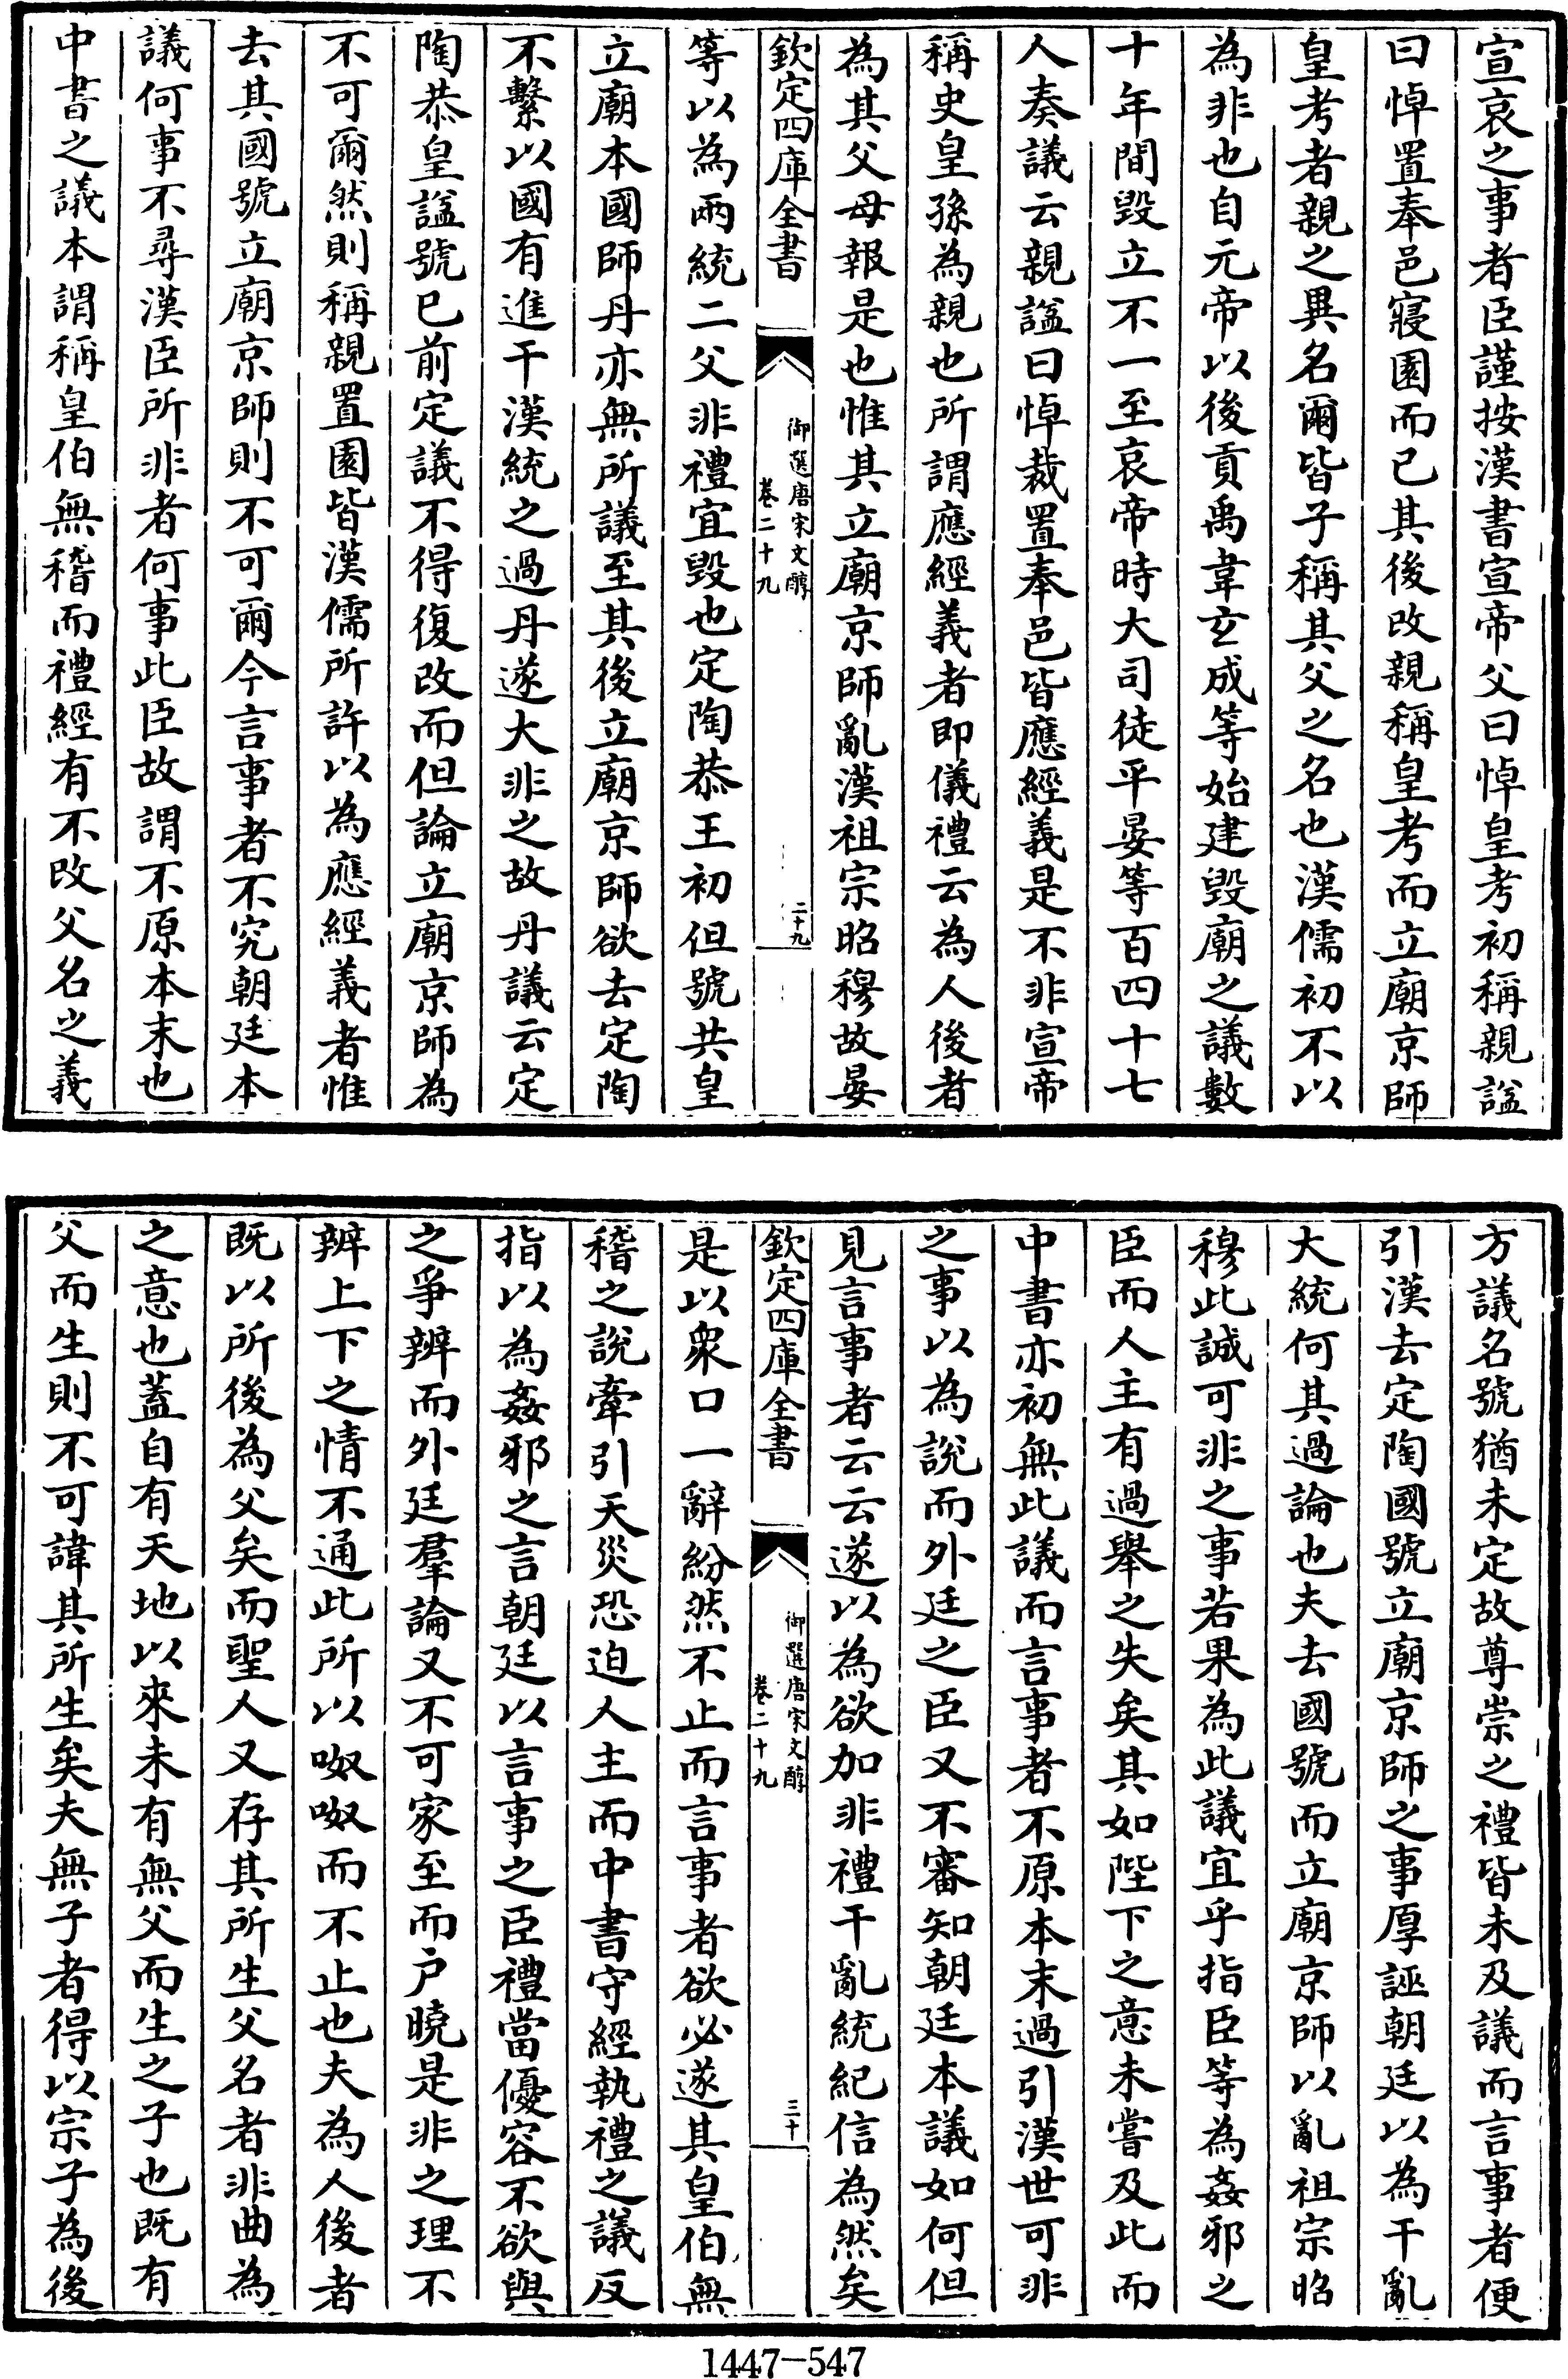 宣哀之事者臣謹按漢書宣帝父曰悼皇考初稱親諡
曰悼置奉邑寢園而已其後改親稱皇考而立廟京師
皇考者親之異名爾皆子稱其父之名也漢儒初不以
為非也自元帝以後貢禹韋玄成等始建毀廟之議數
十年間毀立不一至哀帝時大司徒平晏等百四十七
人奏議云親諡曰悼裁置奉邑皆應經義是不非宣帝
稱史皇孫為親也所謂應經義者即儀禮云為人後者
為其父母報是也惟其立廟京師亂漢祖宗昭穆故晏
欽定四庫全書
御選唐宋文醇
卷二十九
二十九
等以為兩統二父非禮宜毀也定陶恭王初但號共皇
立廟本國師丹亦無所議至其後立廟京師欲去定陶
不繫以國有進干漢統之過丹遂大非之故丹議云定
陶恭皇諡號已前定議不得復改而但論立廟京師為
不可爾然則稱親置園皆漢儒所許以為應經義者惟
去其國號立廟京師則不可爾今言事者不究朝廷本
議何事不尋漢臣所非者何事此臣故謂不原本末也
中書之議本謂稱皇伯無稽而禮經有不改父名之義
方議名號猶未定故尊崇之禮皆未及議而言事者便
引漢去定陶國號立廟京師之事厚誣朝廷以為干亂
大統何其過論也夫去國號而立廟京師以亂祖宗昭
穆此誠可非之事若果為此議宜乎指臣等為姦邪之
臣而人主有過舉之失矣其如陛下之意未嘗及此而
中書亦初無此議而言事者不原本末過引漢世可非
之事以為說而外廷之臣又不審知朝廷本議如何但
見言事者云云遂以為欲加非禮干亂統紀信為然矣
欽定四庫全書
御選唐宋文醇
卷二十九
三十
是以衆口一辭紛然不止而言事者欲必遂其皇伯無
稽之說牽引天災恐迫人主而中書守經執禮之議反
指以為姦邪之言朝廷以言事之臣禮當優容不欲與
之爭辨而外廷羣論又不可家至而户曉是非之理不
辨上下之情不通此所以呶呶而不止也夫為人後者
既以所後為父矣而聖人又存其所生父名者非曲為
之意也蓋自有天地以來未有無父而生之子也既有
父而生則不可諱其所生矣夫無子者得以宗子為後
1447-547